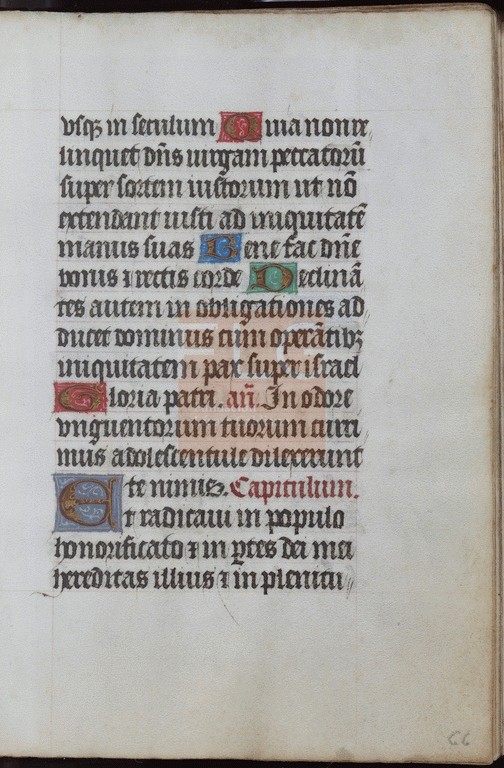 vsq₃ in seculum Quia non re
linquet dn̄s uirgam peccatorū
super sortem iustorum ut nō
extendant iusti ad iniquitatē
manus suas Bene fac dn̄e
bonis ⁊ rectis corde Declinā
tes autem in obligationes ad
ducet dominus cum operātib₃
iniquitatem pax super israel
Gloria patri. an̄. In odore
vnguentorum tuorum curri
mus adolescentule dilexerunt
te nimis. Capitulum.
Et radicaui in populo
honorificato ⁊ in ꝑtes dei mei
hereditas illius ⁊ in plenitu
66